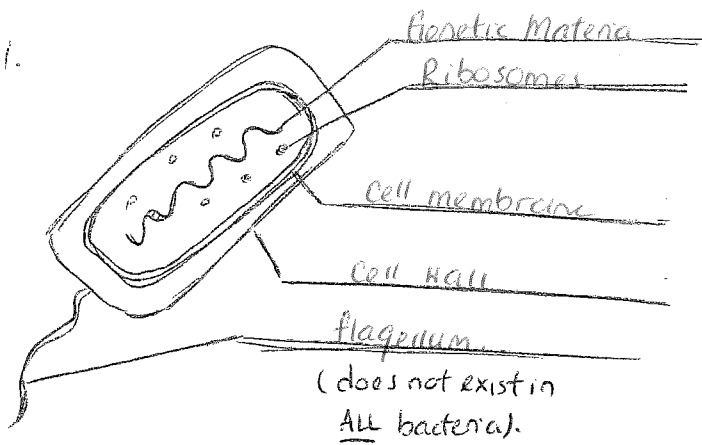 1.
Genetic Materia
Ribosomes
Cell membrane
Cell Wall
flagellum.
(does not exist in
ALL bacteria).